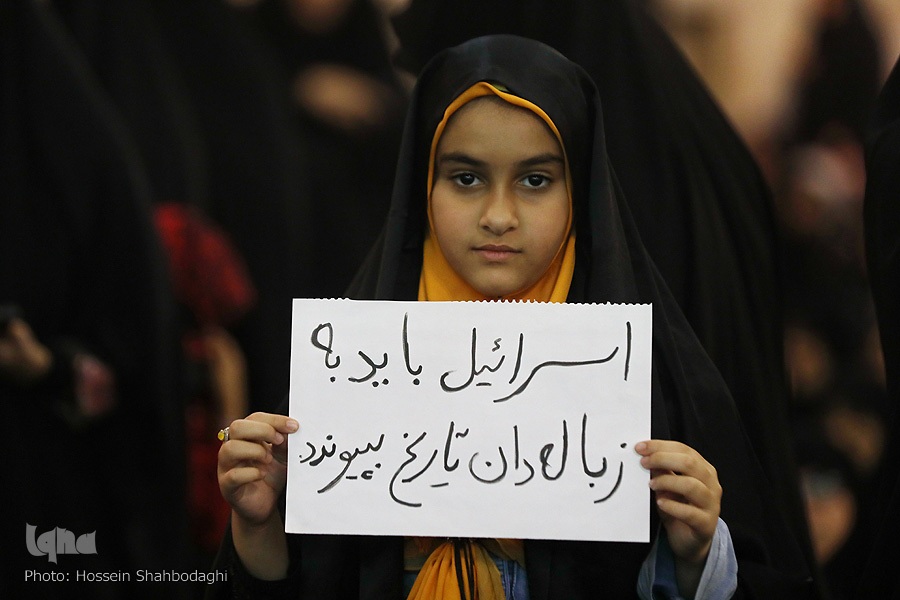 اسرائیل باید به
زباله دان تاریخ بپیوندد.
iqna
Photo: Hossein Shahbodaghi